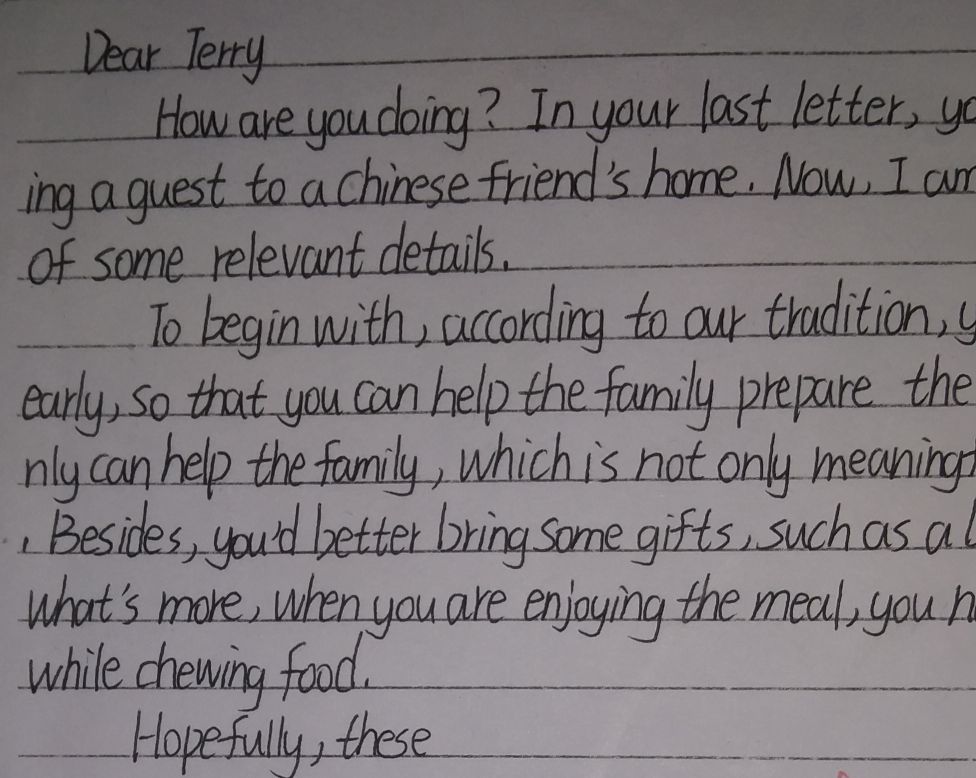 Dear Terry
How are you doing? In your last letter,
ing a guest to a Chinese friend's home. Now, I am
of some relevant details.
To begin with, according to our tradition,
early, so that you can help the family prepare the
nly can help the family, which is not only meaning
. Besides, you'd better bring some gifts, such as a
What's more, when you are enjoying the meal, you
while chewing food.
Hopefully, these